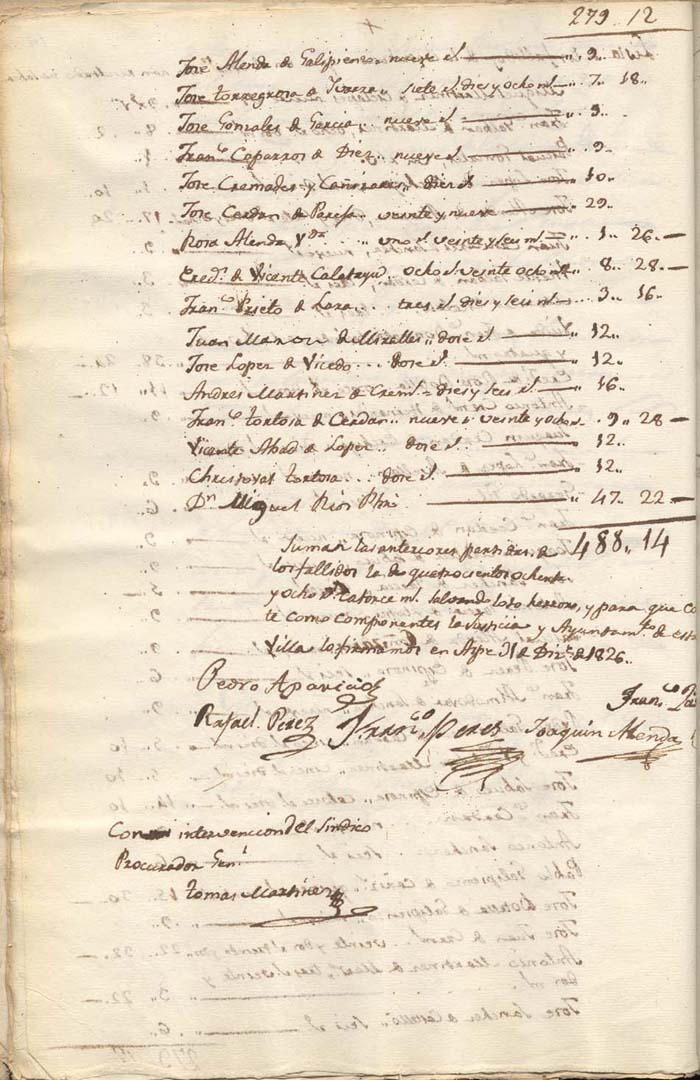 279 12
Jose Alenda de Galipienso nueve rs. " 9 "
Jose torregrosa de Yvarra " siete rs. dies y ocho ms. " 7 " 18 "
Jose Gonzales de Garcia " nueve rs. " 9 "
Franco. Caparros de Diez " nueve rs. " 9
Jose Cremades y Cañizares " dies rs. " 10 "
Jose Cerdan de " veinte y nueve " 29 "
Rosa Alenda Vda. " uno rs. veinte y seis ms. " 1 " 26 —
Ered.s de Vicente Calatayu " ocho rs. veinte ocho ms. 8 " 28 —
Franco. Prieto de Lara " tres rs. dies y seis ms. 3 " 16 "
Juan de Miralles " dose rs. " 12 "
Jose Lopez de Vicedo " dose rs. " 12 "
Andres Martinez de Crem.s dies y seis rs. " 16 "
Franco. tortosa de Cerdan " nueve rs. veinte y ocho ms. " 9 " 28 —
Vicente Abad de Lopez " dose rs. " 12 "
Christoval tortosa " dose rs. " 12 "
Dn. Miguel " 47 " 22 —
Suman las anteriores partidas de 488 " 14
los fallidos la de quatrocientos ochenta
y ocho rs. catorce ms. salvando todo herrero, y para que co
te como componentes la Justicia y Ayuntamto. de esta
Villa lo firmamos en Aspe 31 de Dizre. de 1826 "
Pedro Aparicio
Franco.
Rafael Perez Franco. Peres Joaquin Alenda
Con intervencion del Sindico
Procurador Genl.
tomas Martinez